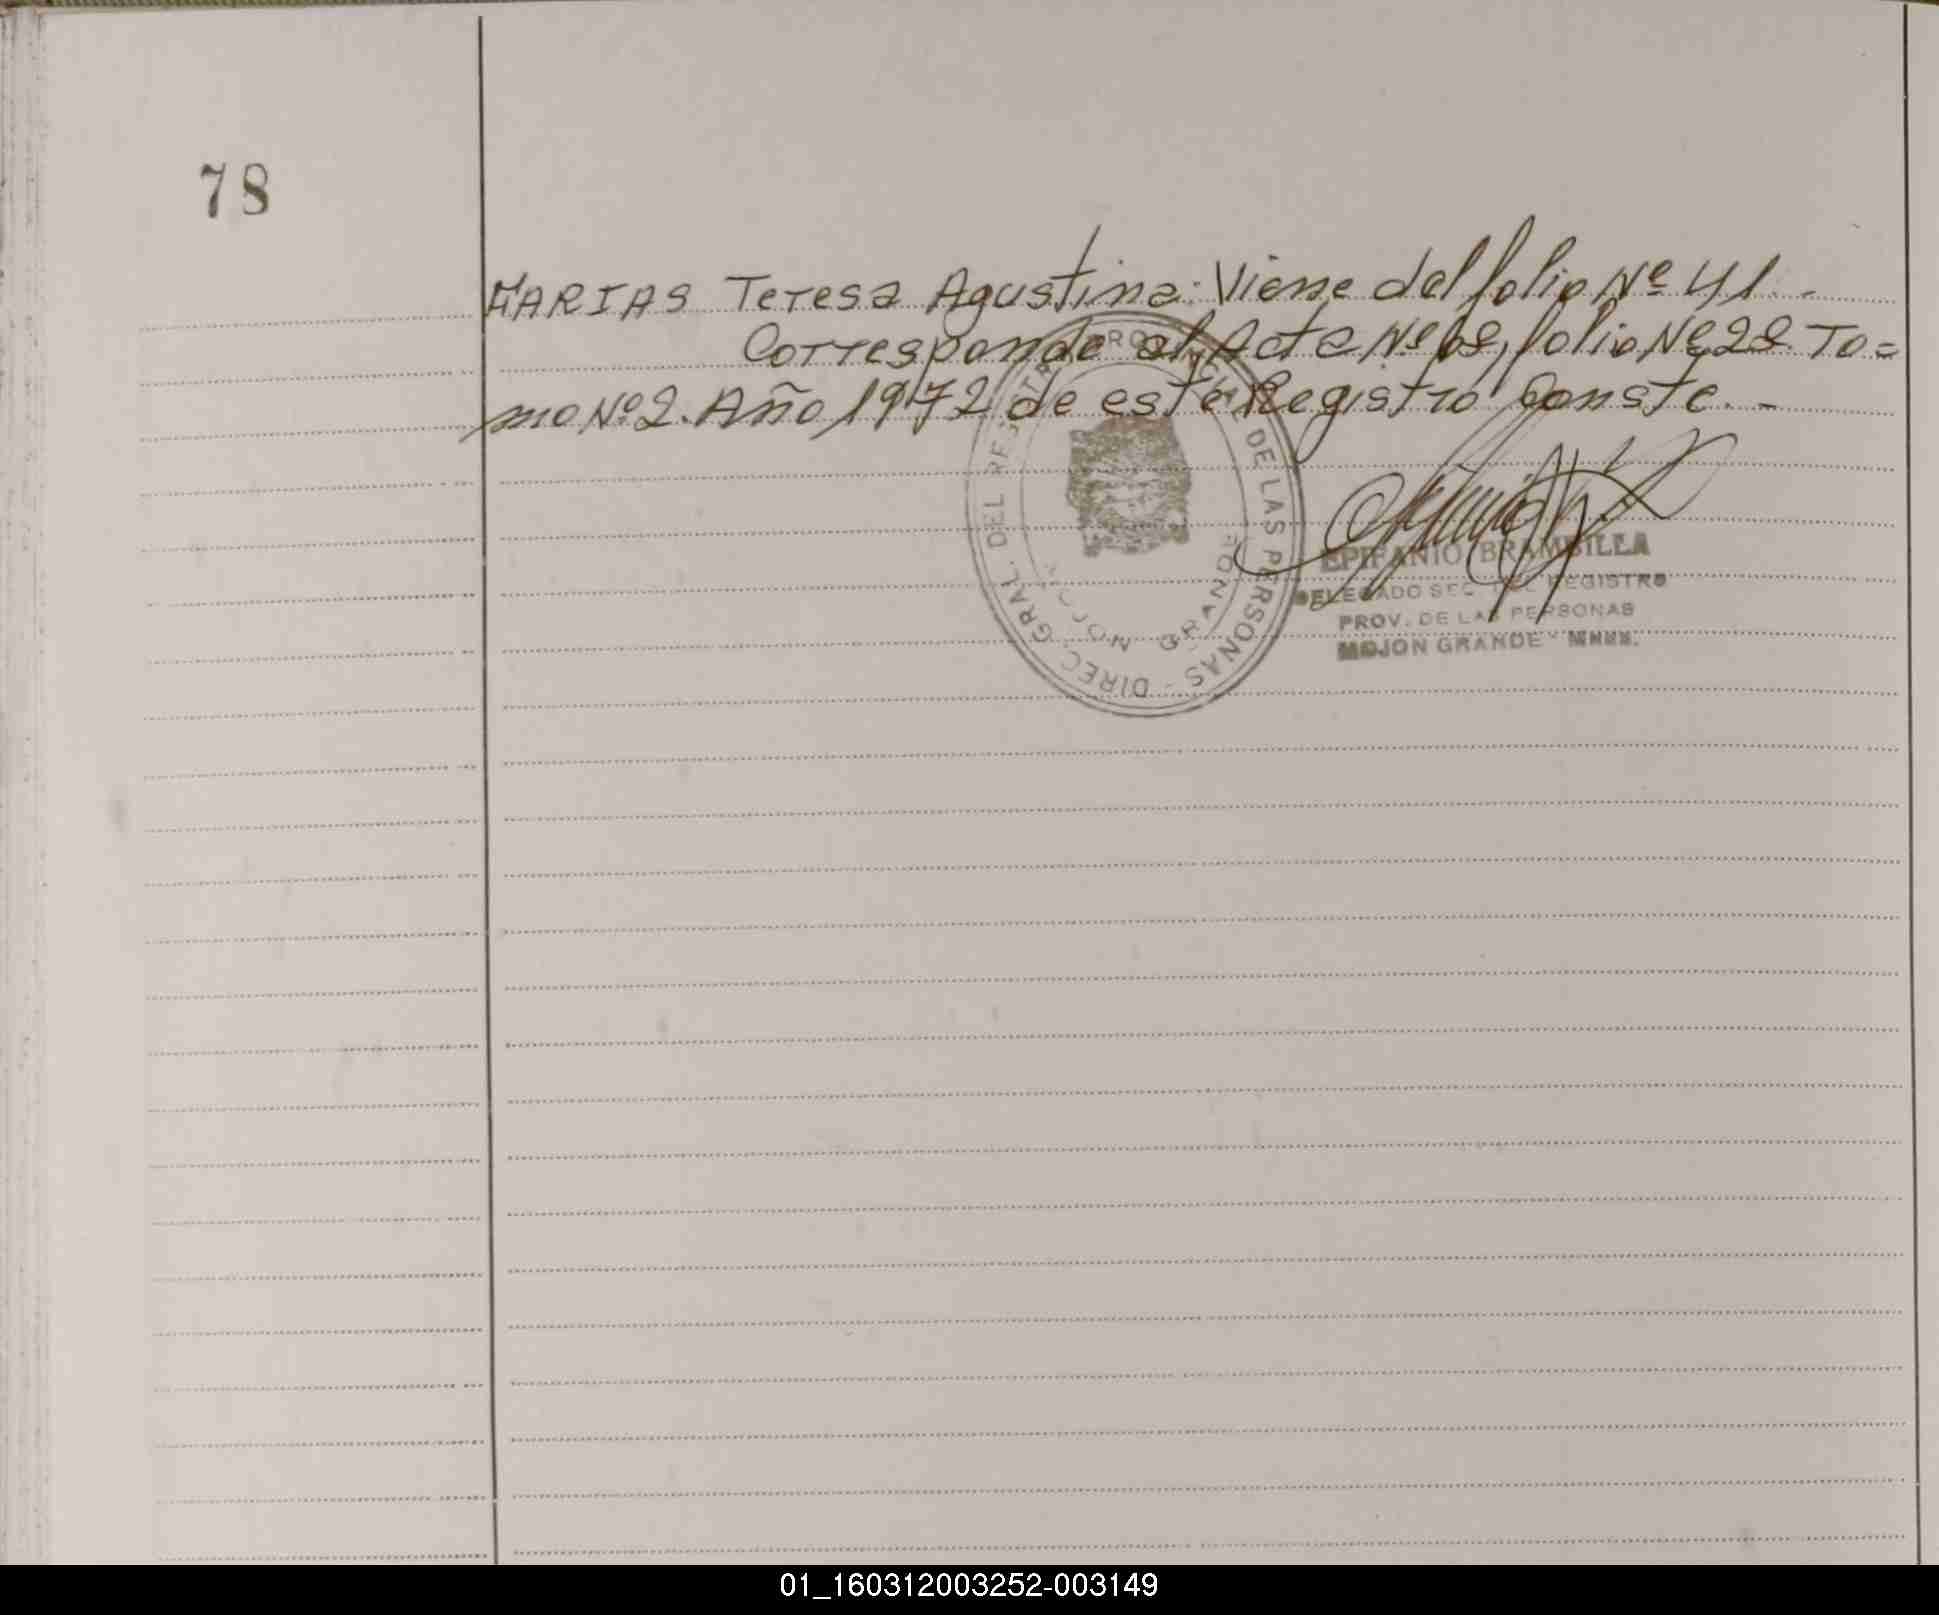 78
FARIAS Teresa Agustina: Viene del folio Nº 41.-
Corresponde al Acta Nº 68, folio Nº 28. To=
mo Nº 2. Año 1972 de este Registro Conste.-
DIREC. GRAL. DEL REGISTRO PROVINCIAL DE LAS PERSONAS -
MOJON GRANDE
EPIFANIO BRAMBILLA
DELEGADO SEC. DEL REGISTRO
PROV. DE LAS PERSONAS
MOJON GRANDE - MNES.
01_160312003252-003149